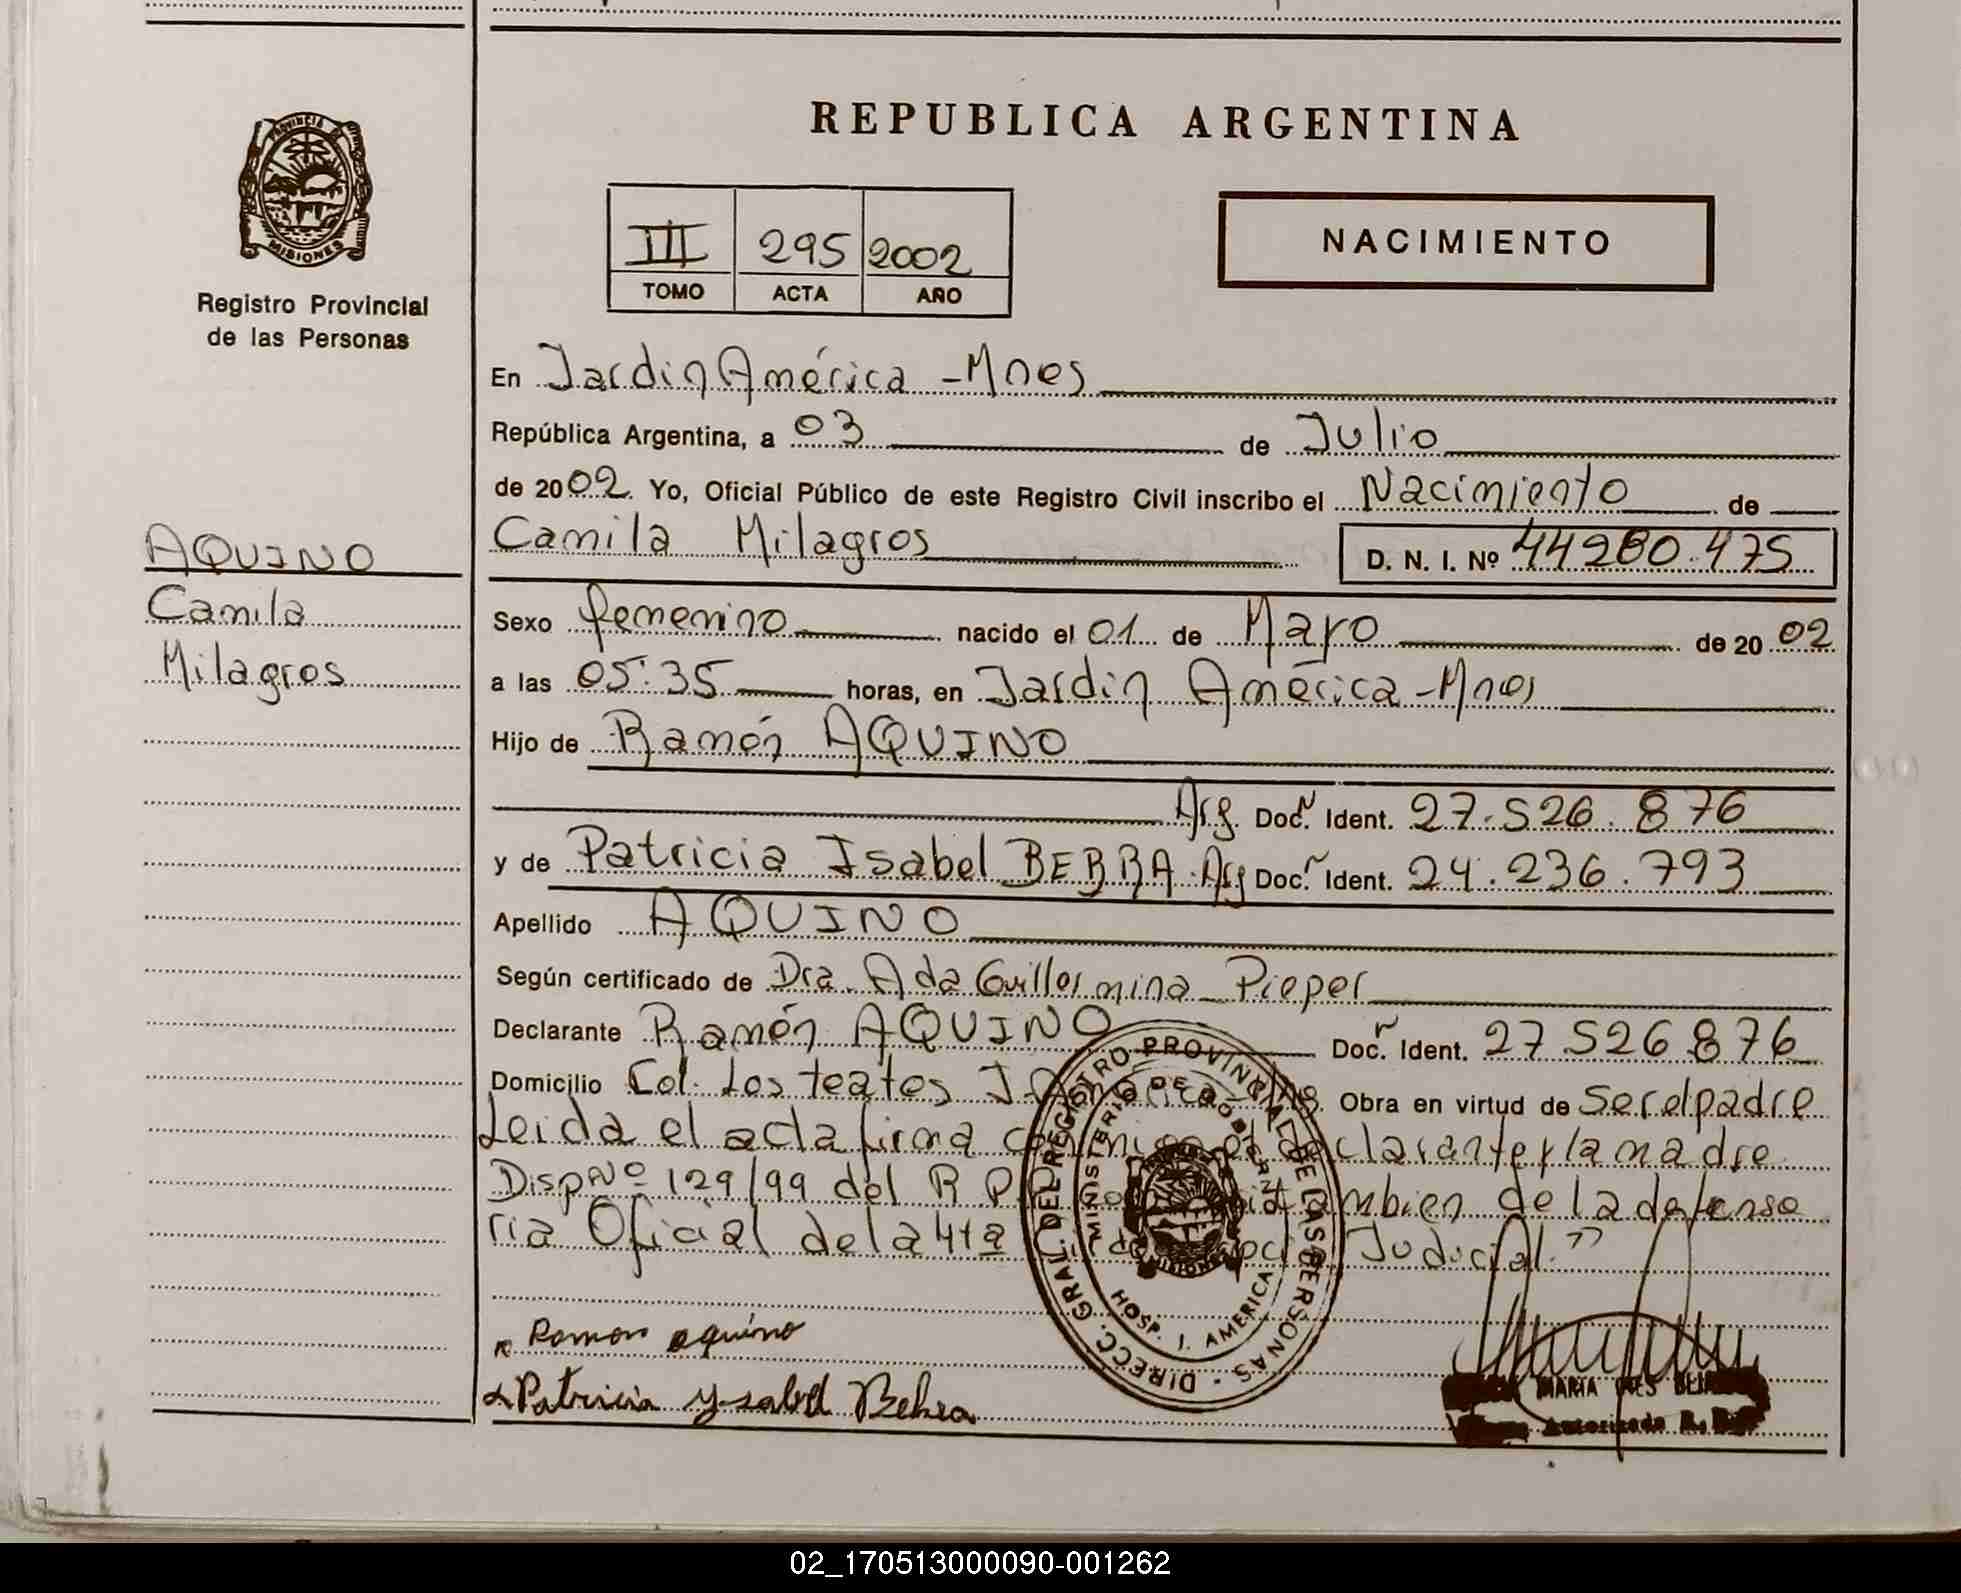 REPUBLICA ARGENTINA
PROVINCIA DE
MISIONES
Registro Provincial
de las Personas
III 295 2002
TOMO ACTA AÑO
NACIMIENTO
En Jardin América - Mnes
República Argentina, a 03 de Julio
de 2002. Yo, Oficial Público de este Registro Civil inscribo el Nacimiento de
Camila Milagros D. N. I. Nº 44280.475
AQUINO
Camila
Milagros
Sexo femenino nacido el 01 de Mayo de 2002
a las 05:35 horas, en Jardin América - Mnes
Hijo de Ramón AQUINO
Arg. Doc. Ident. 27.526.876
y de Patricia Isabel BERRA Arg Doc. Ident. 24.236.793
Apellido AQUINO
Según certificado de Dra. Ada Guillermina Pieper
Declarante Ramón AQUINO Doc. Ident. 27 526 876
Domicilio Col. Los teatos J. América Obra en virtud de Ser el padre
Leida el acta firma conmigo el declarante y la madre
Disp Nº 129/99 del R P tambien de la defenso
ria Oficial de la 4ta Judicial."
DIRECC. GRAL. DEL REGISTRO PROVINCIAL DE LAS PERSONAS
MINISTERIO DE GOBIERNO
HOSP. J. AMERICA
MISIONES
Ramon aquino
Patricia Ysabel Behra
MARIA INES
Autorizada
02_170513000090-001262